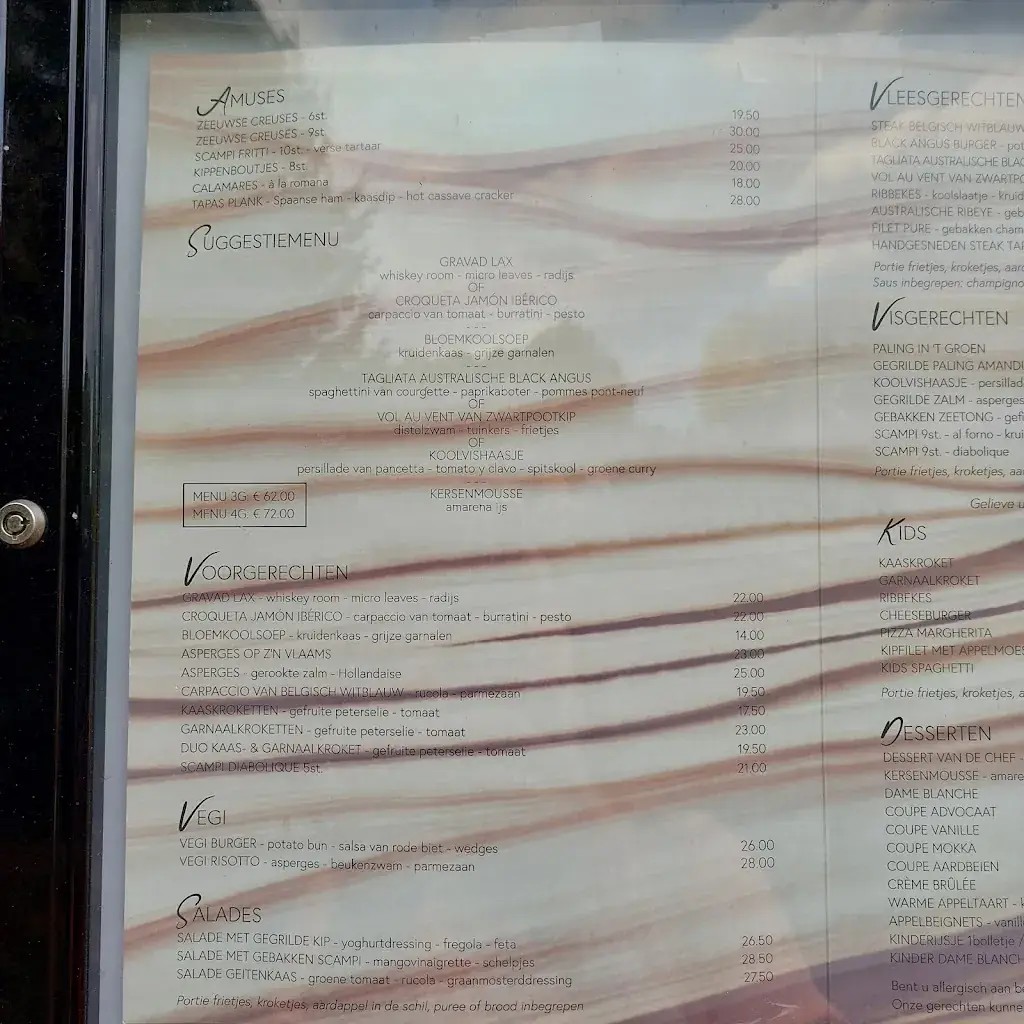 AMUSES
ZEEUWSE CREUSES - 6st. 19.50
ZEEUWSE CREUSES - 9st. 30.00
SCAMPI FRITTI - 10st. - verse tartaar 25.00
KIPPENBOUTJES - 8st. 20.00
CALAMARES - à la romana 18.00
TAPAS PLANK - Spaanse ham - kaasdip - hot cassave cracker 28.00
SUGGESTIEMENU
GRAVAD LAX
whiskey room - micro leaves - radijs
OF
CROQUETA JAMÓN IBÉRICO
carpaccio van tomaat - burratini - pesto
---
BLOEMKOOLSOEP
kruidenkaas - grijze garnalen
---
TAGLIATA AUSTRALISCHE BLACK ANGUS
spaghettini van courgette - paprikaboter - pommes pont-neuf
OF
VOL AU VENT VAN ZWARTPOOTKIP
distelzwam - tuinkers - frietjes
OF
KOOLVISHAASJE
persillade van pancetta - tomato y clavo - spitskool - groene curry
---
KERSENMOUSSE
amarena ijs
MENU 3G: € 62.00
MENU 4G: € 72.00
VOORGERECHTEN
GRAVAD LAX - whiskey room - micro leaves - radijs 22.00
CROQUETA JAMÓN IBÉRICO - carpaccio van tomaat - burratini - pesto 22.00
BLOEMKOOLSOEP - kruidenkaas - grijze garnalen 14.00
ASPERGES OP Z'N VLAAMS 23.00
ASPERGES - gerookte zalm - Hollandaise 25.00
CARPACCIO VAN BELGISCH WITBLAUW - rucola - parmezaan 19.50
KAASKROKETTEN - gefruite peterselie - tomaat 17.50
GARNAALKROKETTEN - gefruite peterselie - tomaat 23.00
DUO KAAS- & GARNAALKROKET - gefruite peterselie - tomaat 19.50
SCAMPI DIABOLIQUE 5st. 21.00
VEGI
VEGI BURGER - potato bun - salsa van rode biet - wedges 26.00
VEGI RISOTTO - asperges - beukenzwam - parmezaan 28.00
SALADES
SALADE MET GEGRILDE KIP - yoghurtdressing - fregola - feta 26.50
SALADE MET GEBAKKEN SCAMPI - mangovinaigrette - schelpjes 28.50
SALADE GEITENKAAS - groene tomaat - rucola - graanmosterddressing 27.50
Portie frietjes, kroketjes, aardappel in de schil, puree of brood inbegrepen
VLEESGERECHTEN
STEAK BELGISCH WITBLAUW
BLACK ANGUS BURGER -
TAGLIATA AUSTRALISCHE
VOL AU VENT VAN
RIBBEKES - koolslaatje -
AUSTRALISCHE RIBEYE -
FILET PURE - gebakken
HANDGESNEDEN STEAK
Portie frietjes, kroketjes,
Saus inbegrepen:
VISGERECHTEN
PALING IN 'T GROEN
GEGRILDE PALING
KOOLVISHAASJE -
GEGRILDE ZALM - asperges
GEBAKKEN ZEETONG -
SCAMPI 9st. - al forno -
SCAMPI 9st. - diabolique
Portie frietjes, kroketjes,
Gelieve
KIDS
KAASKROKET
GARNAALKROKET
RIBBEKES
CHEESEBURGER
PIZZA MARGHERITA
KIPFILET MET
KIDS SPAGHETTI
Portie frietjes, kroketjes,
DESSERTEN
DESSERT VAN DE CHEF -
KERSENMOUSSE -
DAME BLANCHE
COUPE ADVOCAAT
COUPE VANILLE
COUPE MOKKA
COUPE AARDBEIEN
CRÈME BRÛLÉE
WARME APPELTAART -
APPELBEIGNETS -
KINDERIJSJE 1bolletje /
KINDER DAME
Bent u allergisch aan
Onze gerechten